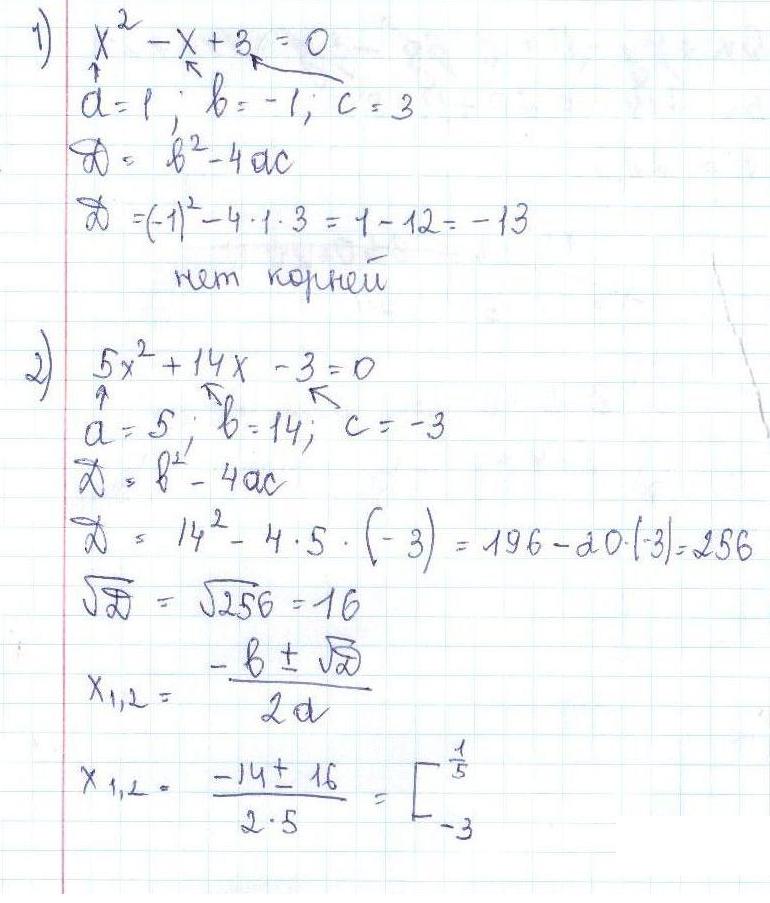 1) x² - x + 3 = 0
a = 1; b = -1; c = 3
D = b² - 4ac
D = (-1)² - 4·1·3 = 1 - 12 = -13
нет корней
2) 5x² + 14x - 3 = 0
a = 5; b = 14; c = -3
D = b² - 4ac
D = 14² - 4·5·(-3) = 196 - 20·(-3) = 256
√D = √256 = 16
x₁,₂ = (-b ± √D) / 2a
x₁,₂ = (-14 ± 16) / 2·5 = [ 1/5
-3